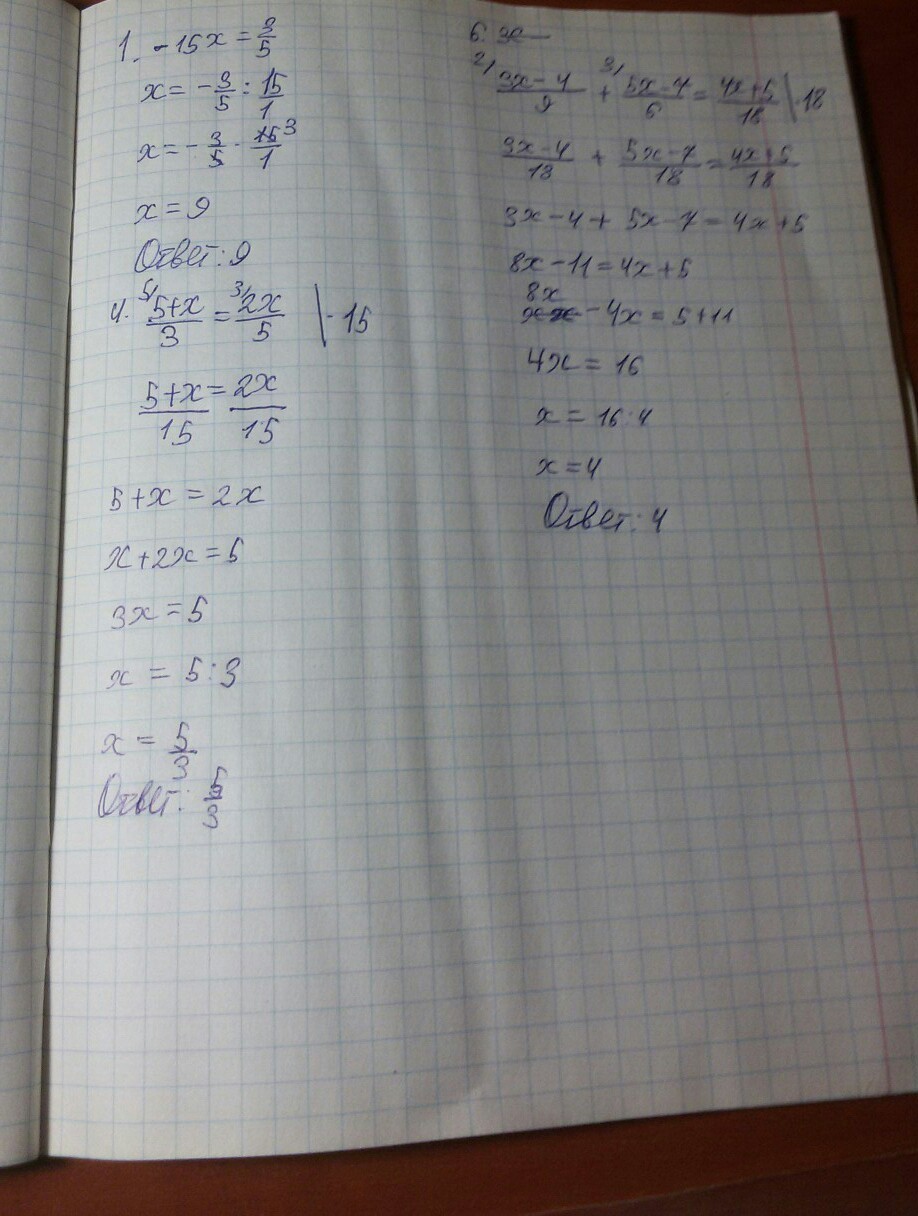 1. -15x = 3/5
x = - 3/5 : 15/1
x = - 3/5 · 15/1 3
x = 9
Ответ: 9
4. 5/ 5+x/3 = 3/ 2x/5 | · 15
5+x/15 = 2x/15
5+x = 2x
x+2x = 5
3x = 5
x = 5:3
x = 5/3
Ответ: 5/3
6. 3x
2/ 3x-4/9 + 3/ 5x-7/6 = 4x+5/18 | · 18
3x-4/18 + 5x-7/18 = 4x+5/18
3x-4+5x-7=4x+5
8x-11=4x+5
8x -4x = 5+11
4x = 16
x = 16:4
x = 4
Ответ: 4